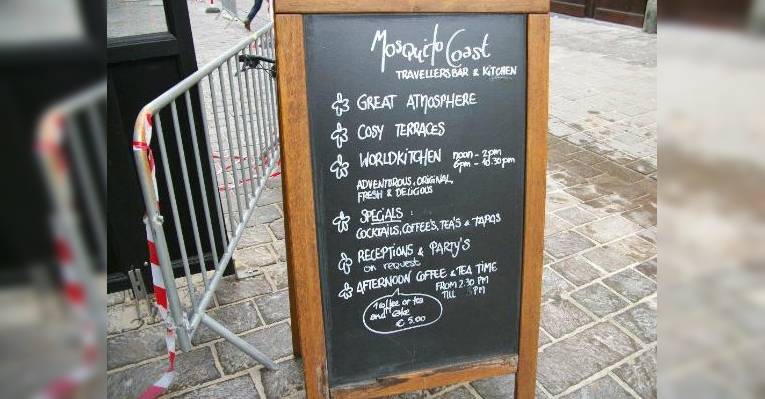 Mosquito Coast
TRAVELLERS BAR & KITCHEN
GREAT ATMOSPHERE
COSY TERRACES
WORLDKITCHEN noon - 2pm
6pm - 10.30pm
ADVENTOROUS, ORIGINAL,
FRESH & DELICIOUS
SPECIALS :
COCKTAILS, COFFEE'S, TEA'S & TAPAS
RECEPTIONS & PARTY'S
on request
AFTERNOON COFFEE & TEA TIME
FROM 2.30 PM
TILL PM
1 coffee or tea
and cake
€ 5.00